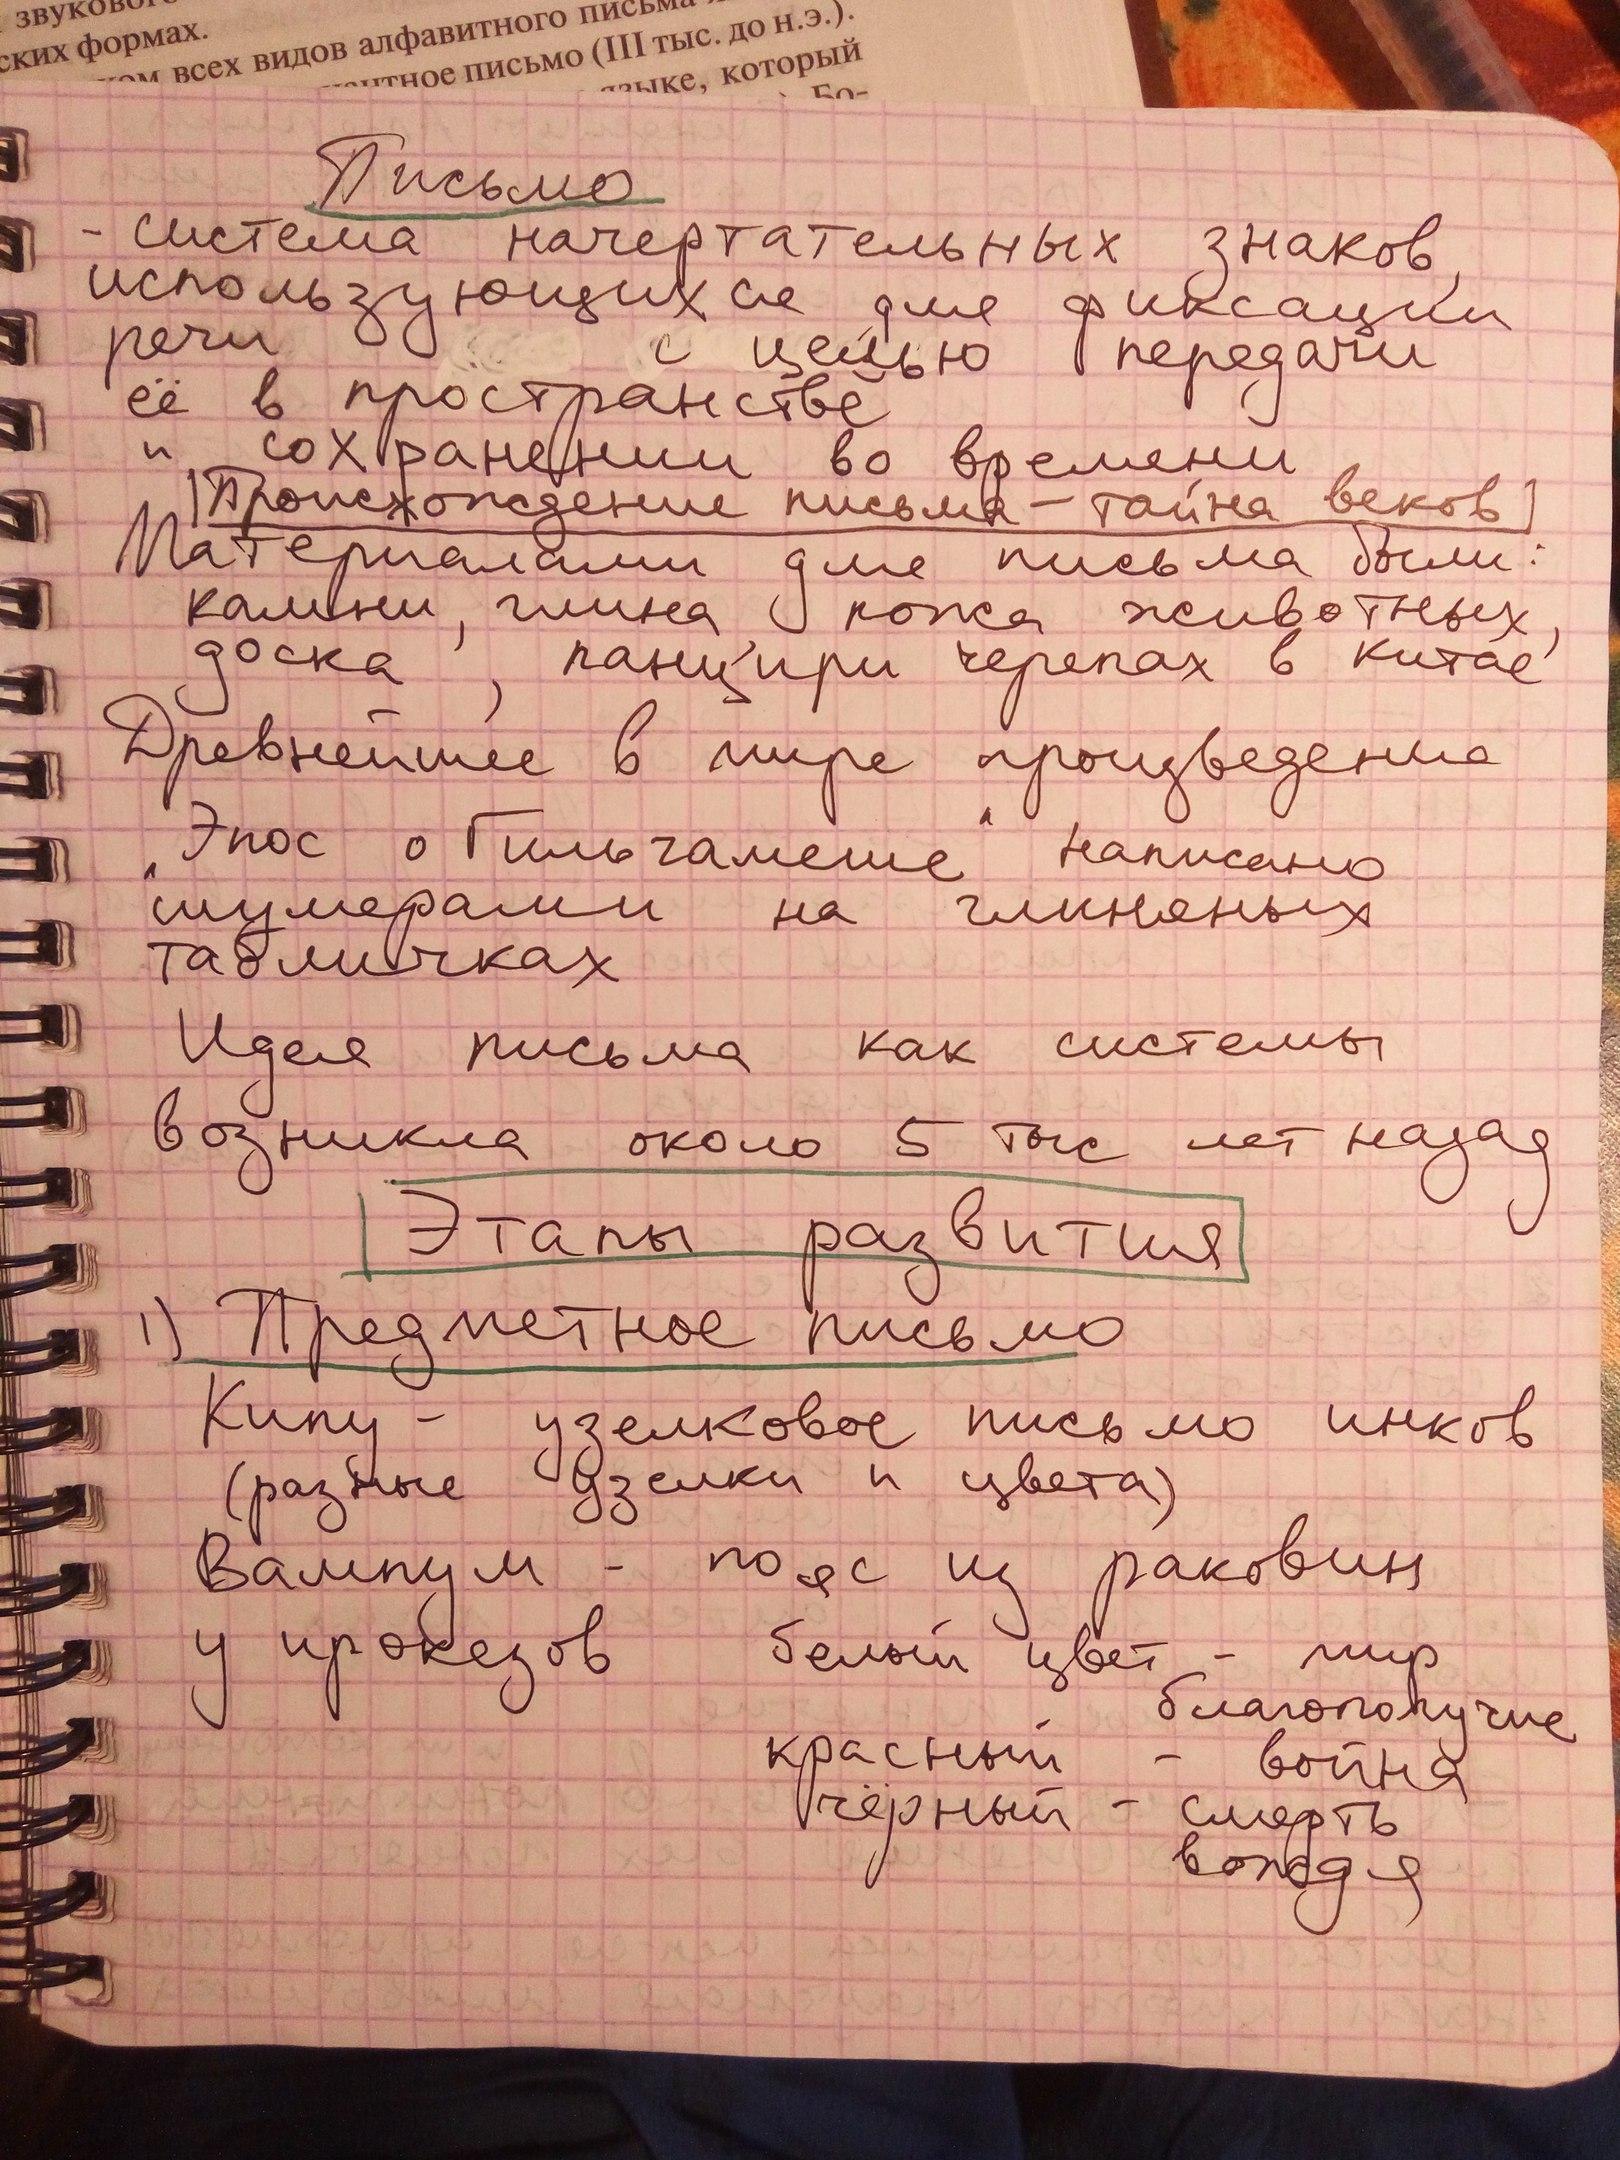 звукового
ских формах.
всех видов алфавитного письма
письмо (III тыс. до н.э.).
языке, который
Бо-
Письмо
- система начертательных знаков,
использующихся для фиксации
речи с целью передачи
её в пространстве
и сохранении во времени
[Происхождение письма - тайна веков]
Материалами для письма были:
камни, глина, кожа животных,
доска, панцири черепах в Китае
Древнейшее в мире произведение
"Эпос о Гильгамеше" написано
шумерами на глиняных
табличках
Идея письма как системы
возникла около 5 тыс лет назад
Этапы развития
1) Предметное письмо
Кипу - узелковое письмо инков
(разные узелки и цвета)
Вампум - пояс из раковин
у ирокезов белый цвет - мир
благополучие
красный - война
чёрный - смерть
вождя